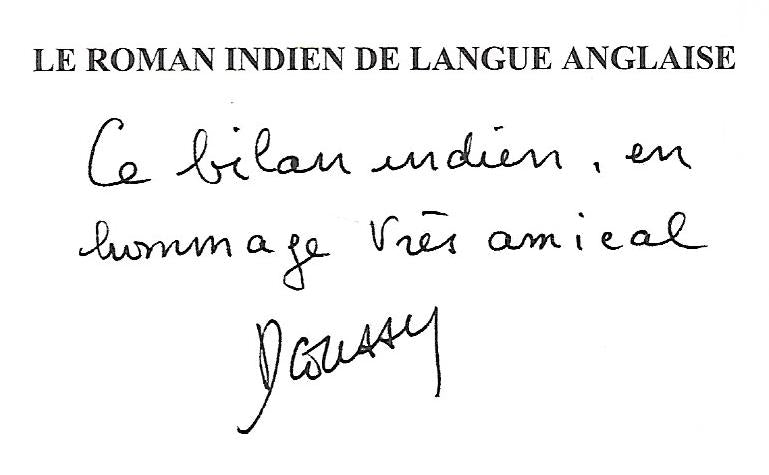 LE ROMAN INDIEN DE LANGUE ANGLAISE
Ce bilan indien, en
hommage très amical
DCoussy